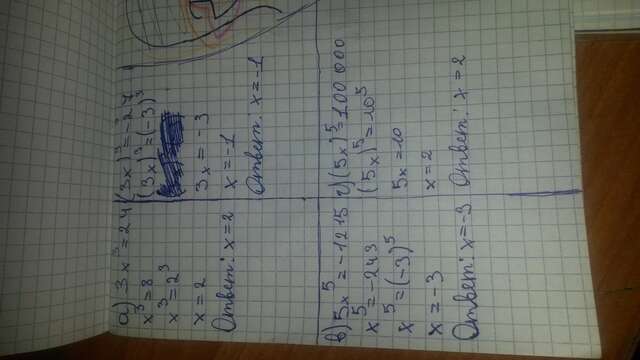 а) 3x³ = 24
x³ = 8
x³ = 2³
x = 2
Ответ: x = 2
(3x)³ = -27
(3x)³ = (-3)³
3x = -3
x = -1
Ответ: x = -1
в) 5x⁵ = -1215
x⁵ = -243
x⁵ = (-3)⁵
x = -3
Ответ: x = -3
г) (5x)⁵ = 100 000
(5x)⁵ = 10⁵
5x = 10
x = 2
Ответ: x = 2